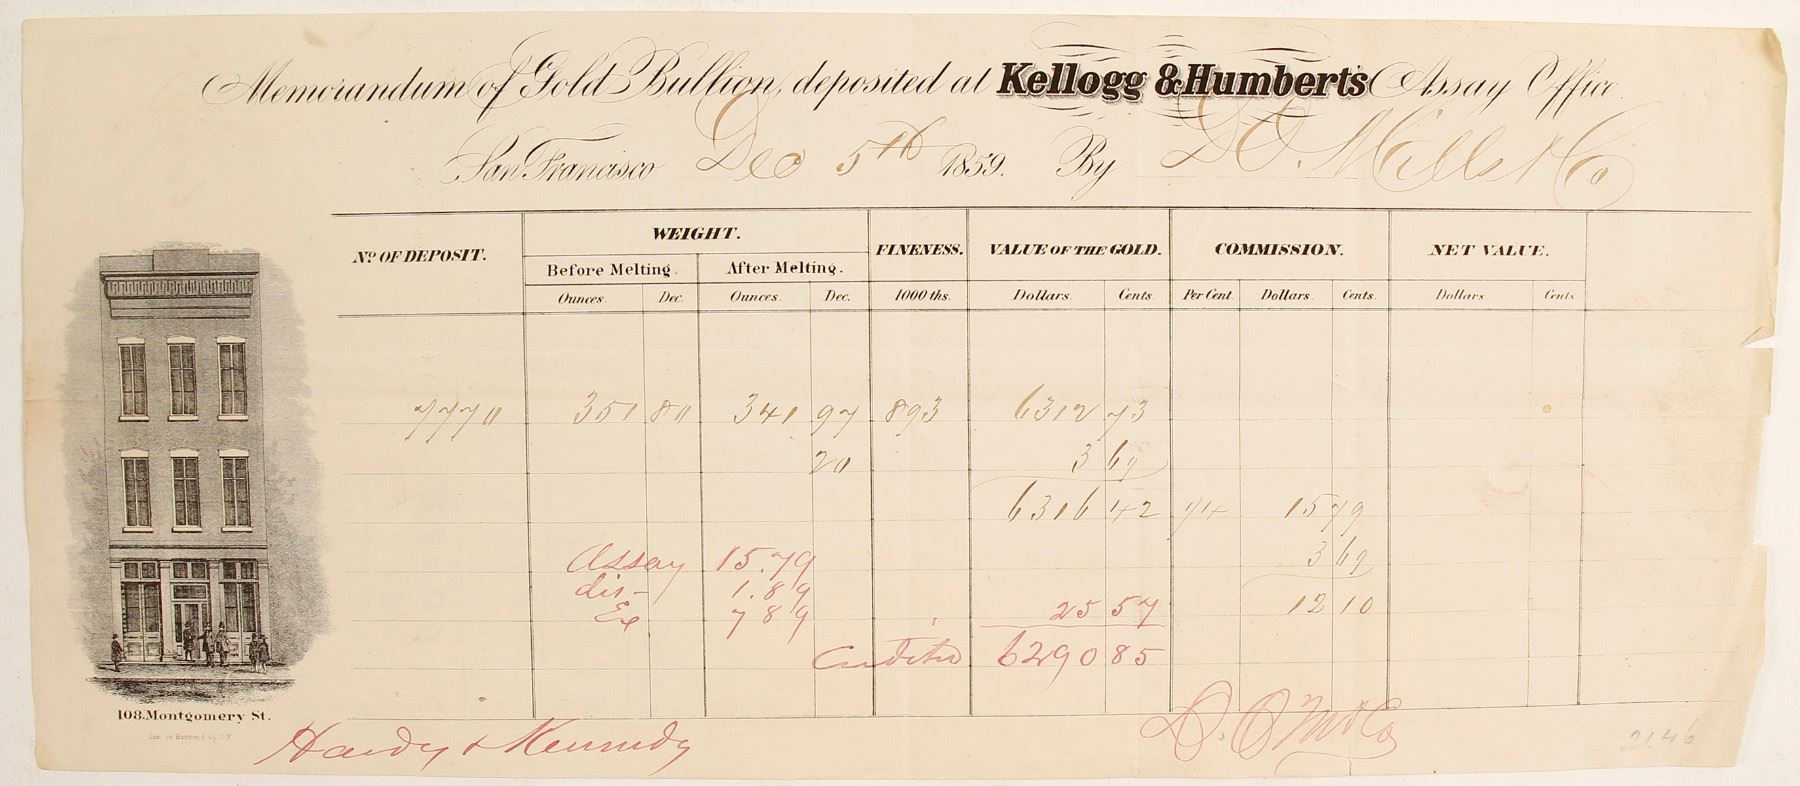 Memorandum of Gold Bullion, deposited at Kellogg & Humbert's Assay Office
San Francisco Dec 5th 1859. By D.O. Mills & Co
No. OF DEPOSIT. WEIGHT. FINENESS. VALUE OF THE GOLD. COMMISSION. NET VALUE.
Before Melting. After Melting.
Ounces. Dec. Ounces. Dec. 1000 ths. Dollars. Cents. Per Cent. Dollars. Cents. Dollars. Cents.
7770 351 80 341 97 893 6312 73
20 3 69
6316 42 1/4 15 79
Assay 15.79 3 69
dis- 1.89 12 10
Ex 7 89 25 57
Credited 6290 85
108. Montgomery St.
Lith. of Britton & Co. S.F.
Hardy & Kennedy D. O. M & Co
2146